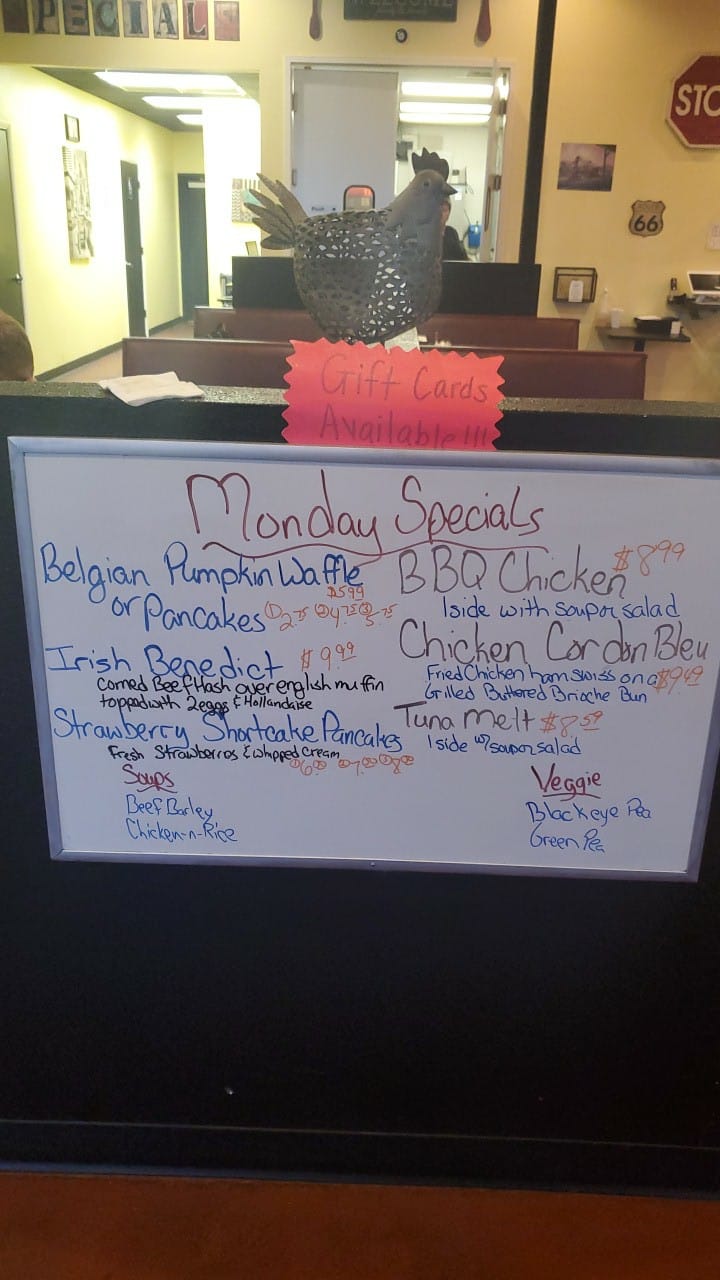 SPECIALS
WELCOME
STO
ROUTE
66
Gift Cards
Available!!!
Monday Specials
Belgian Pumpkin Waffle
$5.99
or Pancakes ① 2.75 ② 4.75 ③ 5.75
Irish Benedict $9.99
Corned Beef Hash over english muffin
topped with 2 eggs & Hollandaise
Strawberry Shortcake Pancakes
Fresh Strawberros & Whipped Cream
Soups
Beef Barley
Chicken-n-Rice
BBQ Chicken $8.99
1 side with soup or salad
Chicken Cordon Bleu
Fried Chicken ham swiss on a $9.49
Grilled Buttered Brioche Bun
Tuna Melt $8.59
1 side w/ soup or salad
Veggie
Blackeye Pea
Green Pea